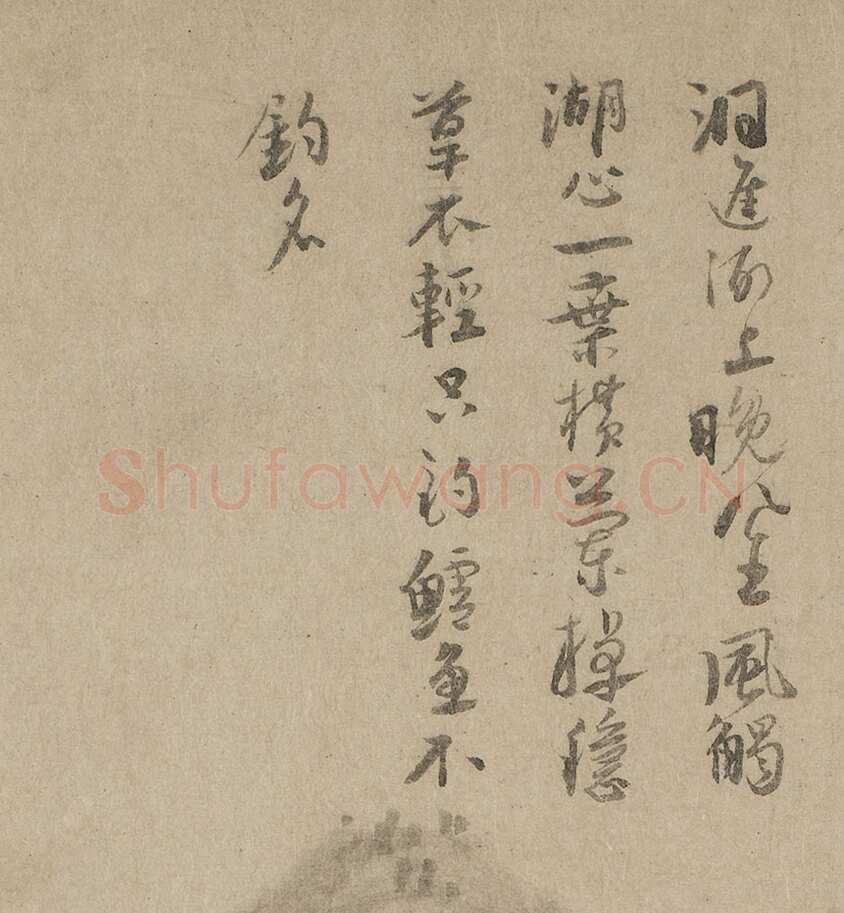 洞庭湖上晚風生風觸
湖心一葉橫蘭棹穩
草衣輕只釣鱸魚不
釣名
Shufawang.CN